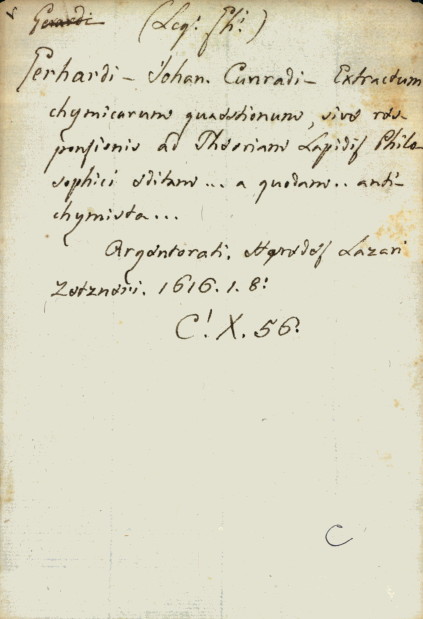 Gerardi (Leg: Gh:)
Gerhardi - Iohan. Cunradi - Extractum
chymicarum quaestionum, sive res
ponsionis ad Theoriam Lapidis Philo
sophici editam ... a quodam .. anti-
chymista ...
Argentorati. Haeredes Lazari
Zetzneri. 1616. 1. 8:
C! X. 56.
C